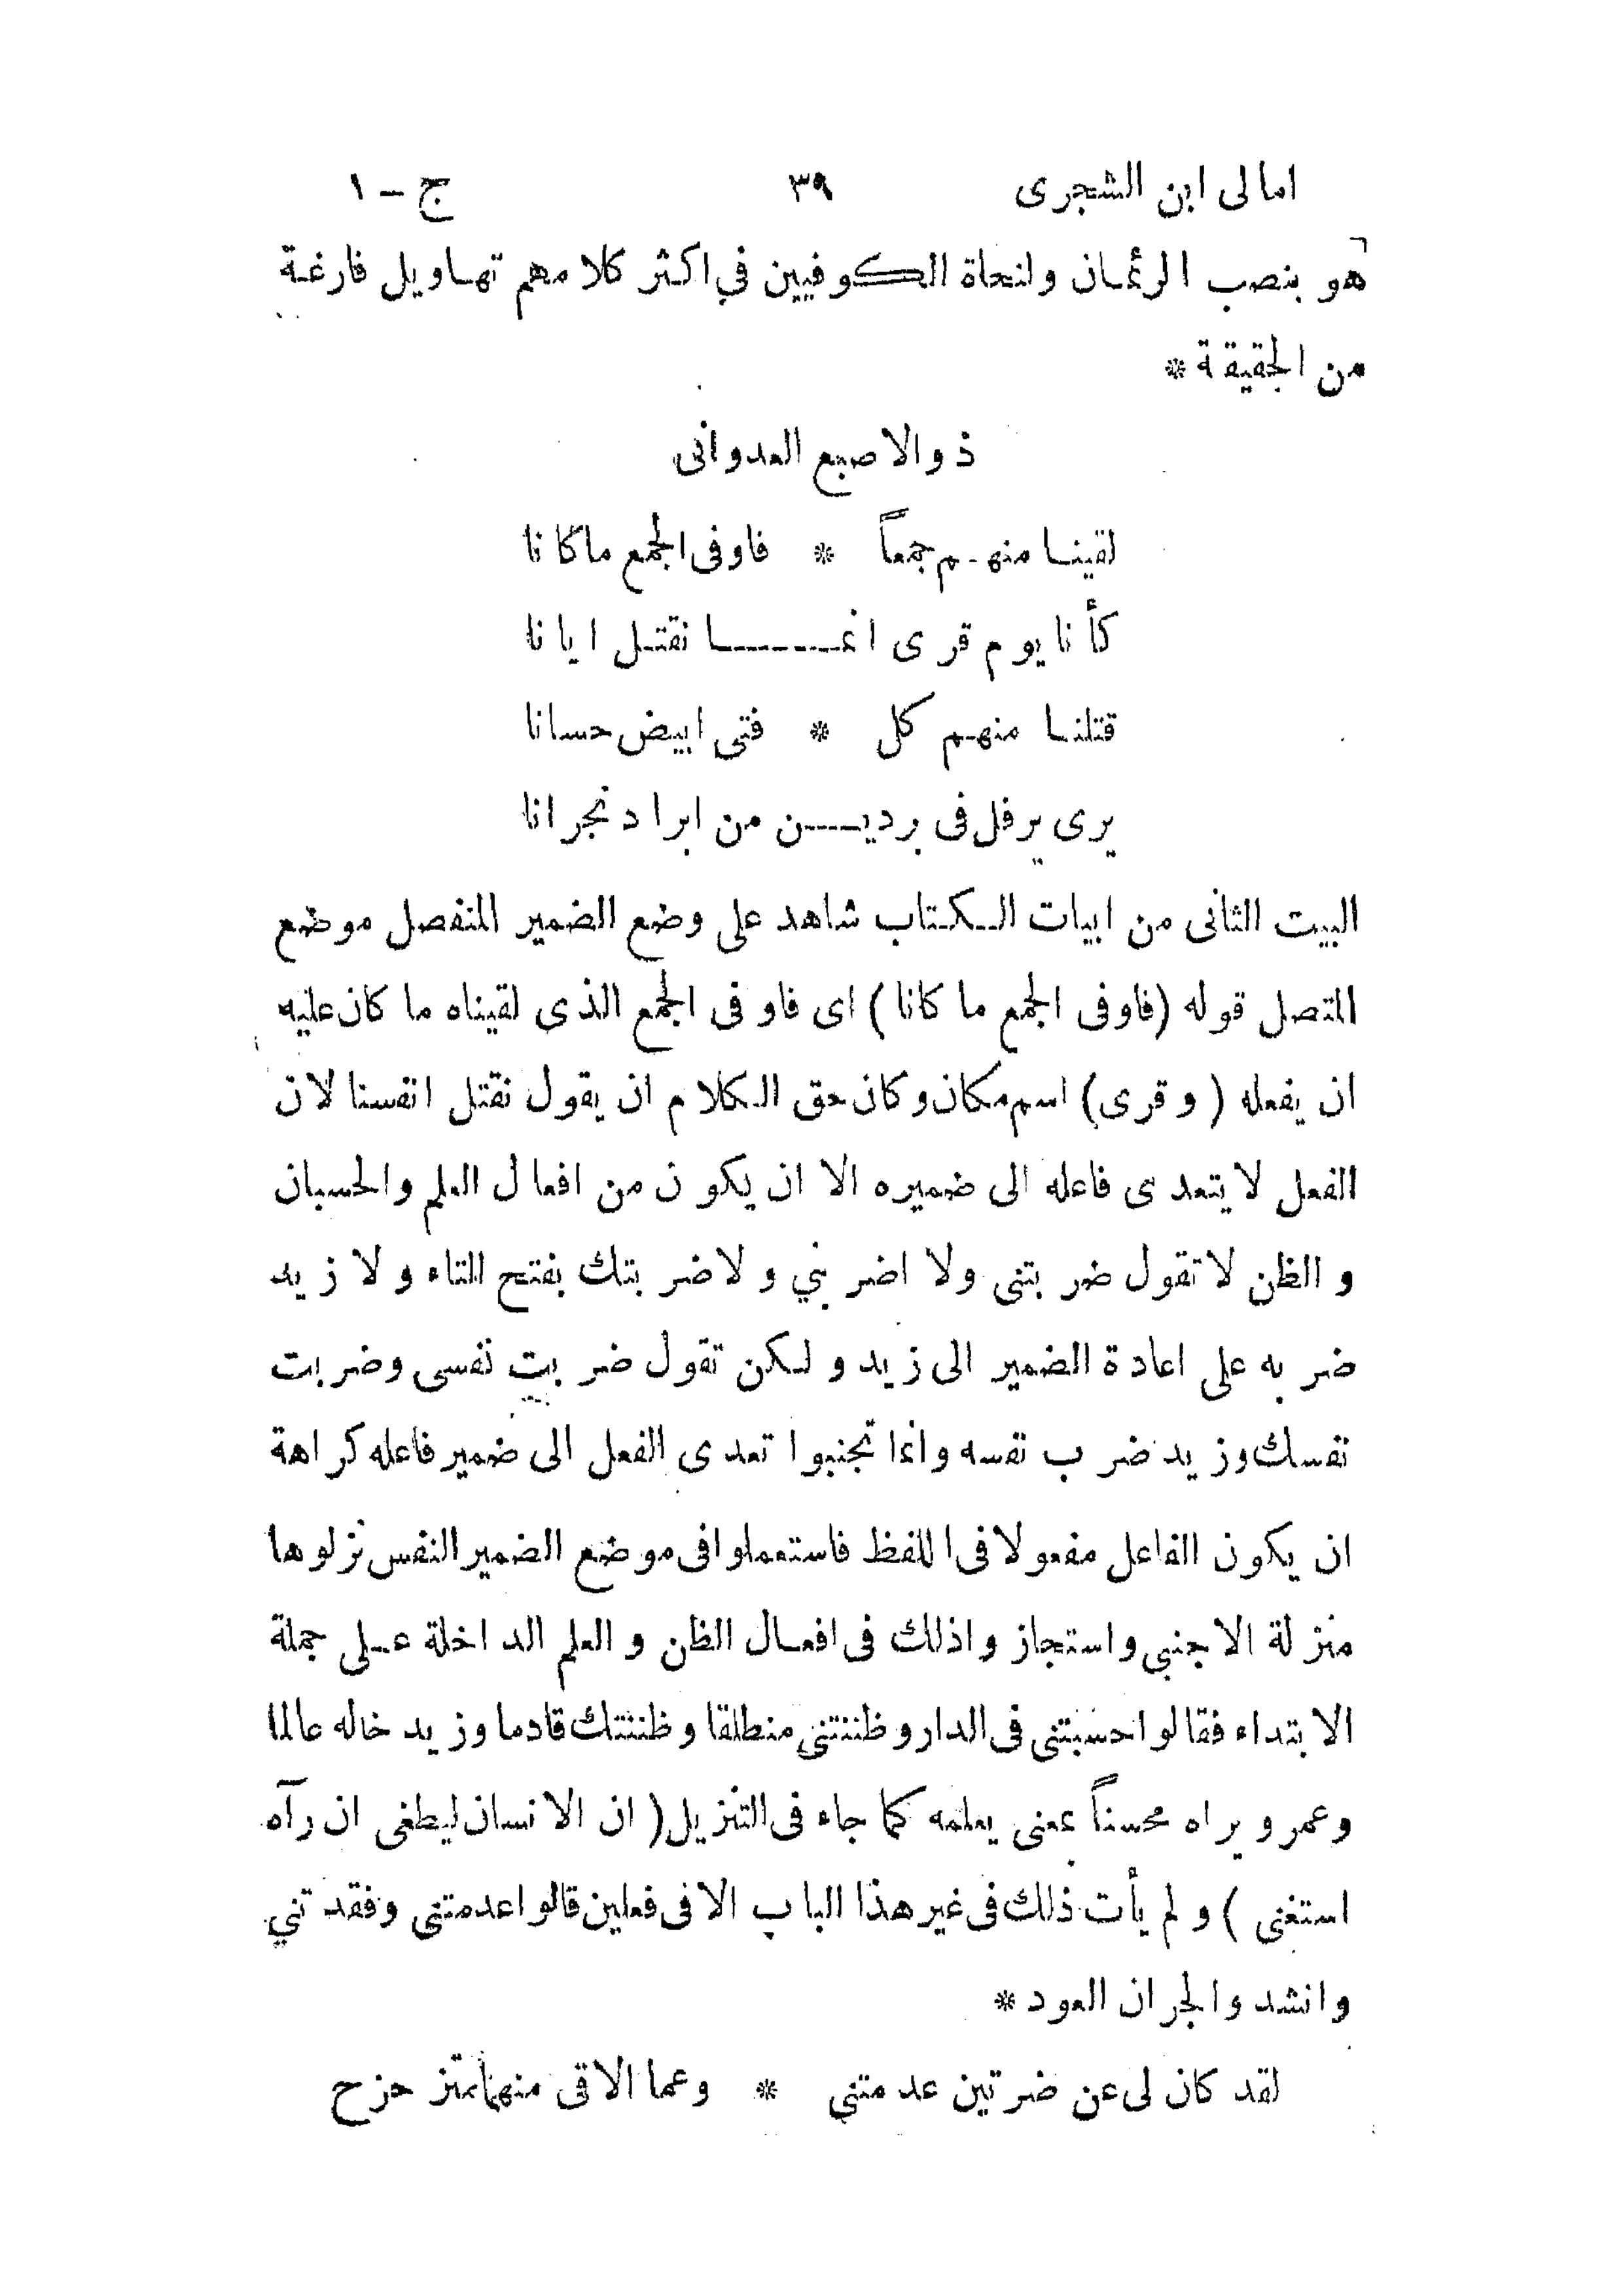 امالى ابن الشجرى ٣٩ ج - ١
هو بنصب الرئمان ولنحاة الكوفيين في اكثر كلامهم تهاويل فارغة
من الحقيقة *
ذو الاصبع العدوانى
لقينا منهم جمعاً * فاوفى الجمع ماكانا
كأنا يوم قرى انما نقتل ايانا
قتلنا منهم كل * فتى ابيض حسانا
يرى يرفل فى بردين من ابراد نجرانا
البيت الثانى من ابيات الكتاب شاهد على وضع الضمير المنفصل موضع
المتصل قوله (فاوفى الجمع ما كانا) اى فاوفى الجمع الذى لقيناه ما كان عليه
ان يفعله (وقرى) اسم مكان وكان حق الكلام ان يقول نقتل انفسنا لان
الفعل لا يتعدى فاعله الى ضميره الا ان يكون من افعال العلم والحسبان
والظن لا تقول ضربتنى ولا اضربني ولا ضربتك بفتح التاء ولا زيد
ضربه على اعادة الضمير الى زيد ولكن تقول ضربت نفسى وضربت
نفسك وزيد ضرب نفسه وانما تجنبوا تعدى الفعل الى ضمير فاعله كراهة
ان يكون الفاعل مفعولا فى اللفظ فاستعملوا فى موضع الضمير النفس نزلوها
منزلة الاجنبي واستجازوا ذلك فى افعال الظن والعلم الداخلة على جملة
الابتداء فقالوا حسبتنى فى الدار وظننتنى منطلقا وظننتك قادما وزيد خاله عالما
وعمرو يراه محسناً بمعنى يعلمه كما جاء فى التنزيل (ان الانسان ليطغى ان رآه
استغنى) ولم يأت ذلك فى غير هذا الباب الا فى فعلين قالوا عدمتنى وفقدتني
وانشدوا لجران العود *
لقد كان لى عن ضرتين عدمتني * وعما الاقى منهما متزحزح